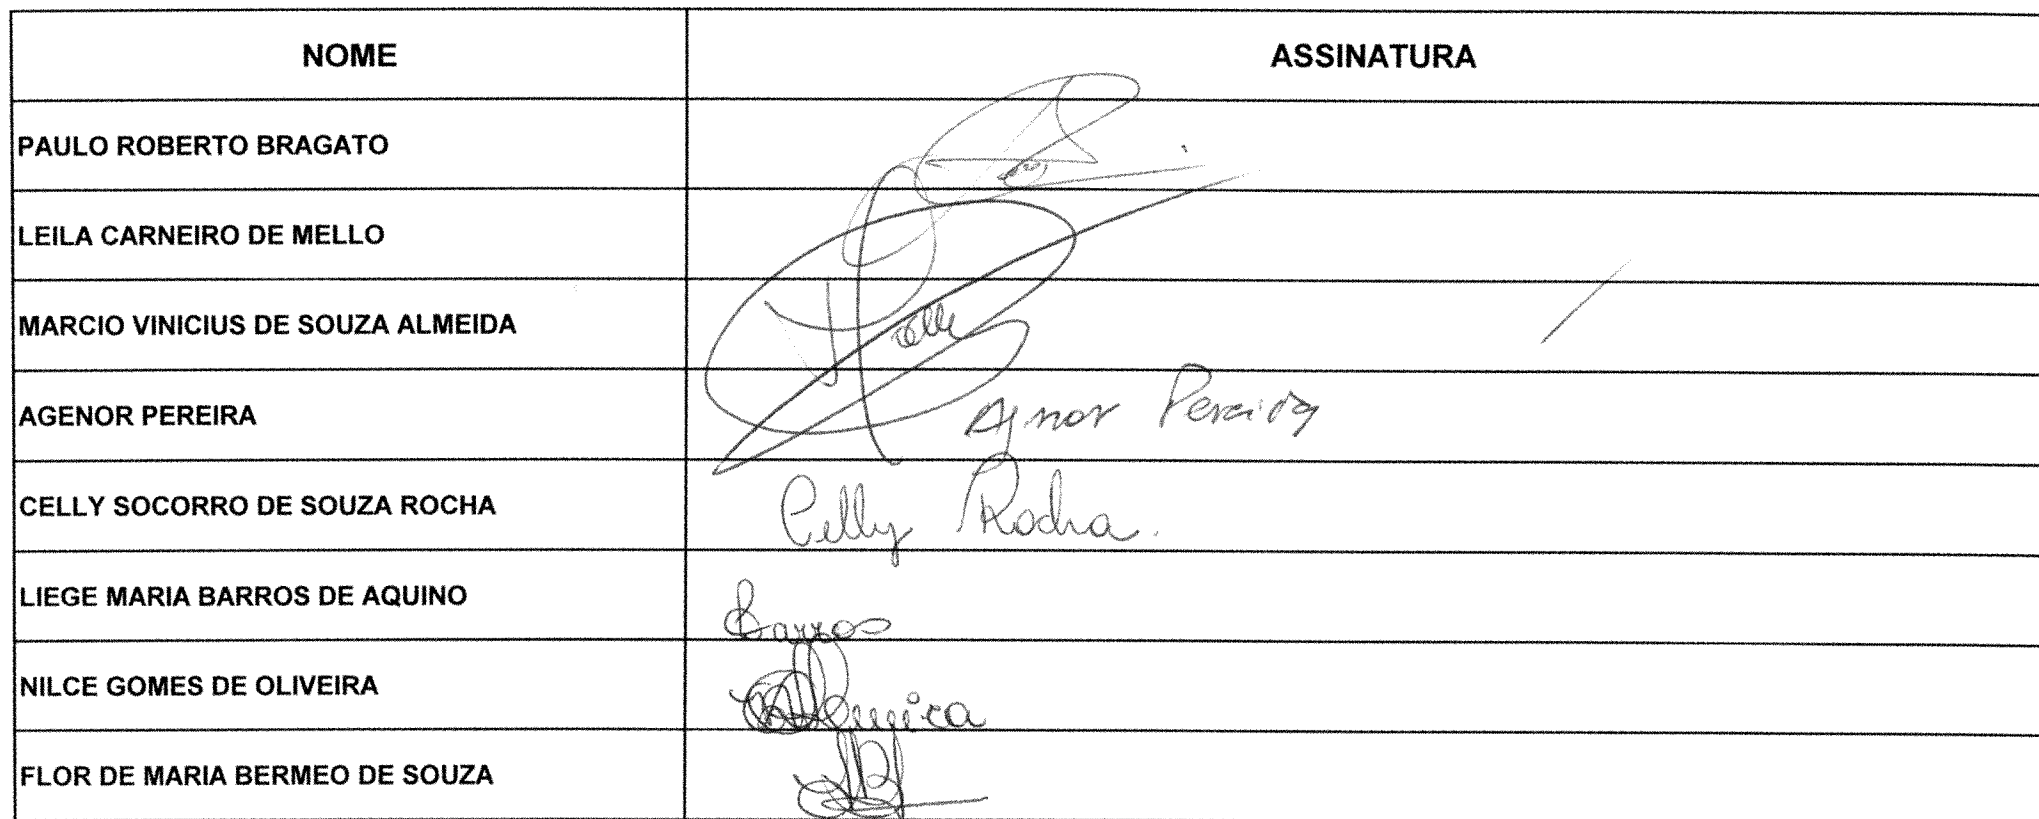 NOME ASSINATURA
PAULO ROBERTO BRAGATO
LEILA CARNEIRO DE MELLO
MARCIO VINICIUS DE SOUZA ALMEIDA
AGENOR PEREIRA Agnor Pereira
CELLY SOCORRO DE SOUZA ROCHA Celly Rocha.
LIEGE MARIA BARROS DE AQUINO Barros
NILCE GOMES DE OLIVEIRA
FLOR DE MARIA BERMEO DE SOUZA